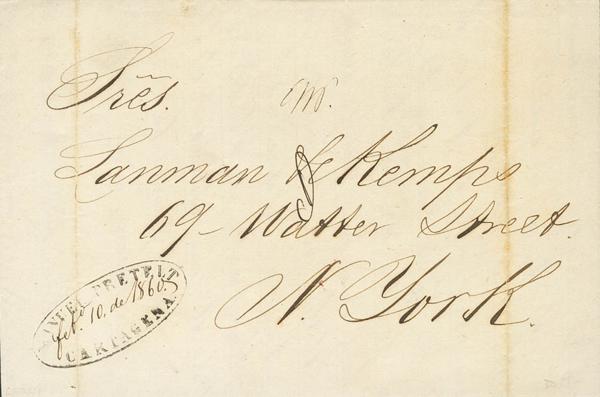 Srẽs.
Lanman & Kemps
69- Watter Street.
N. York.
MANUEL PRETELT
feb. 10. de 1860.
CARTAGENA